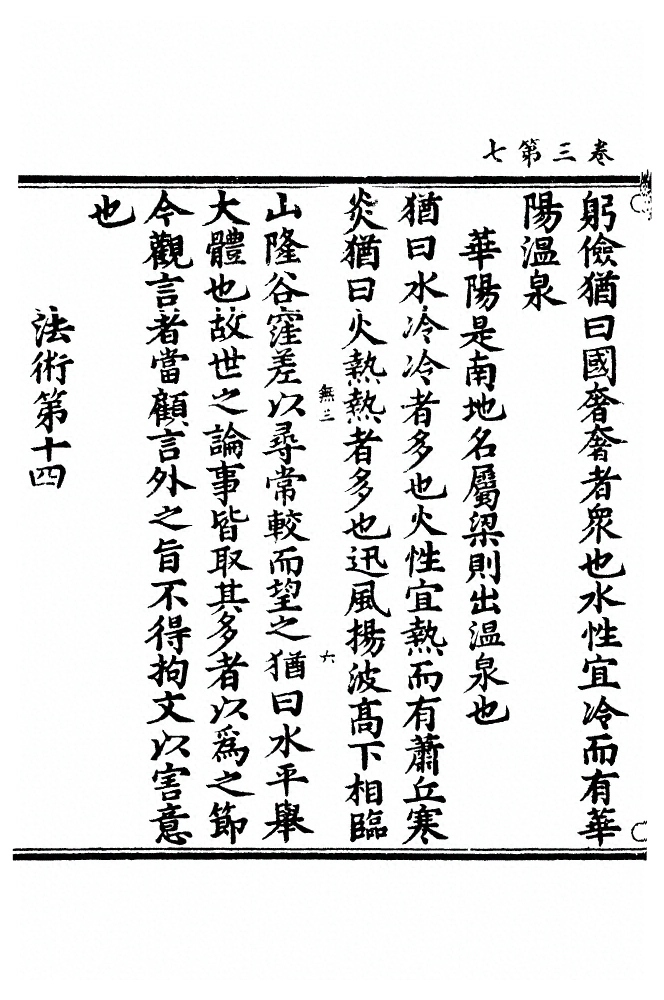 卷三第七
躬儉猶曰國奢奢者衆也水性宜冷而有華
陽溫泉
華陽是南地名屬梁則出溫泉也
猶曰水冷冷者多也火性宜熱而有蕭丘寒
炎猶曰火熱熱者多也迅風揚波高下相臨
無三
六
山隆谷窪差以尋常較而望之猶曰水平舉
大體也故世之論事皆取其多者以爲之節
今觀言者當顧言外之旨不得拘文以害意
也
法術第十四